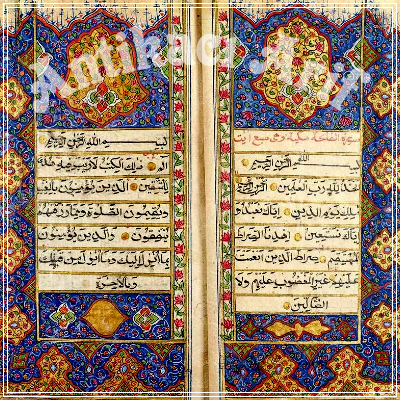 سورة الفاتحة مكية وهي سبع ايات
بسم الله الرحمن الرحيم
الحمد لله رب العلمين الرحمن الرحيم
ملك يوم الدين اياك نعبد
واياك نستعين اهدنا الصراط
المستقيم صراط الذين انعمت
عليهم غير المغضوب عليهم ولا
الضالين
بسم الله الرحمن الرحيم
الم ذلك الكتب لا ريب فيه هدى
للمتقين الذين يؤمنون بالغيب
ويقيمون الصلوة ومما رزقنهم
ينفقون والذين يؤمنون
بما انزل اليك وما انزل من قبلك
وبالاخرة